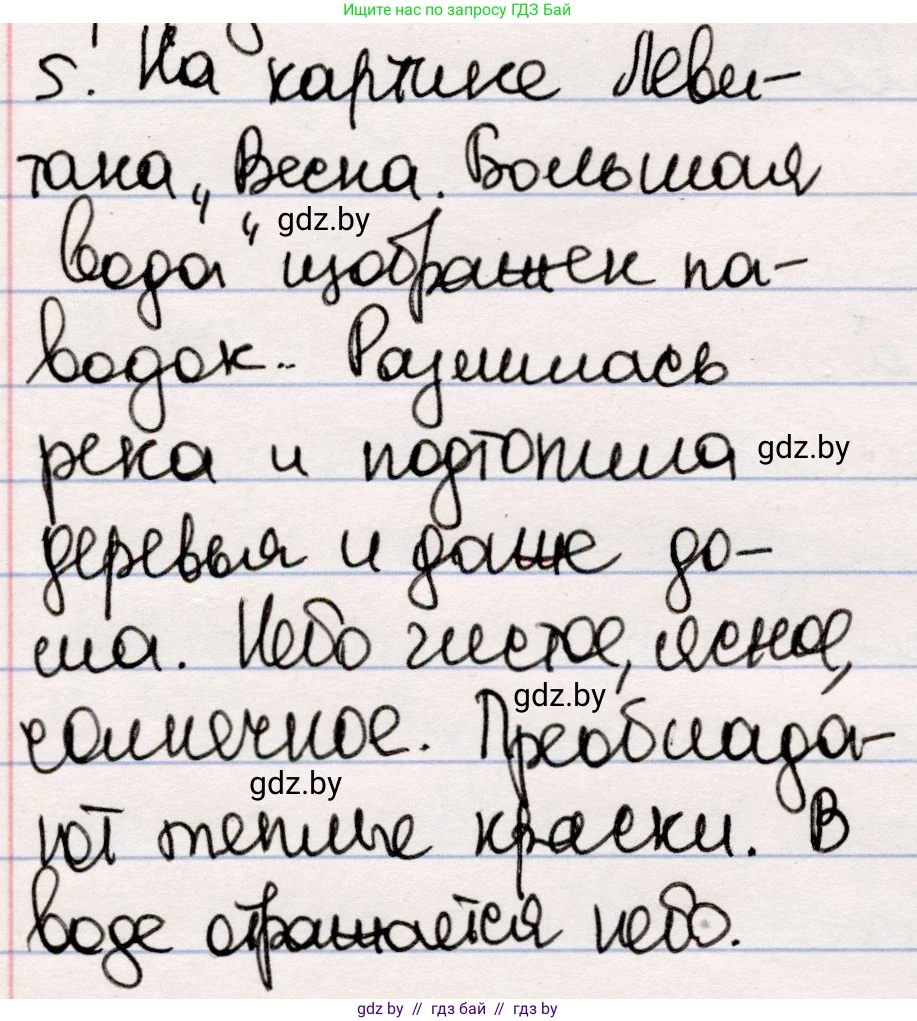 Ищите нас по запросу ГДЗ Бай
5. На картине Леви-
тана „Весна. Большая
gdz.by
вода“ изображен па-
водок.. Разлилась
река и подтопила
gdz.by
деревья и даже до-
ма. Небо чистое, ясное,
gdz.by
солнечное. Преоблада-
gdz.by
ют теплые краски. В
воде отражается небо.
gdz.by // гдз бай // гдз by